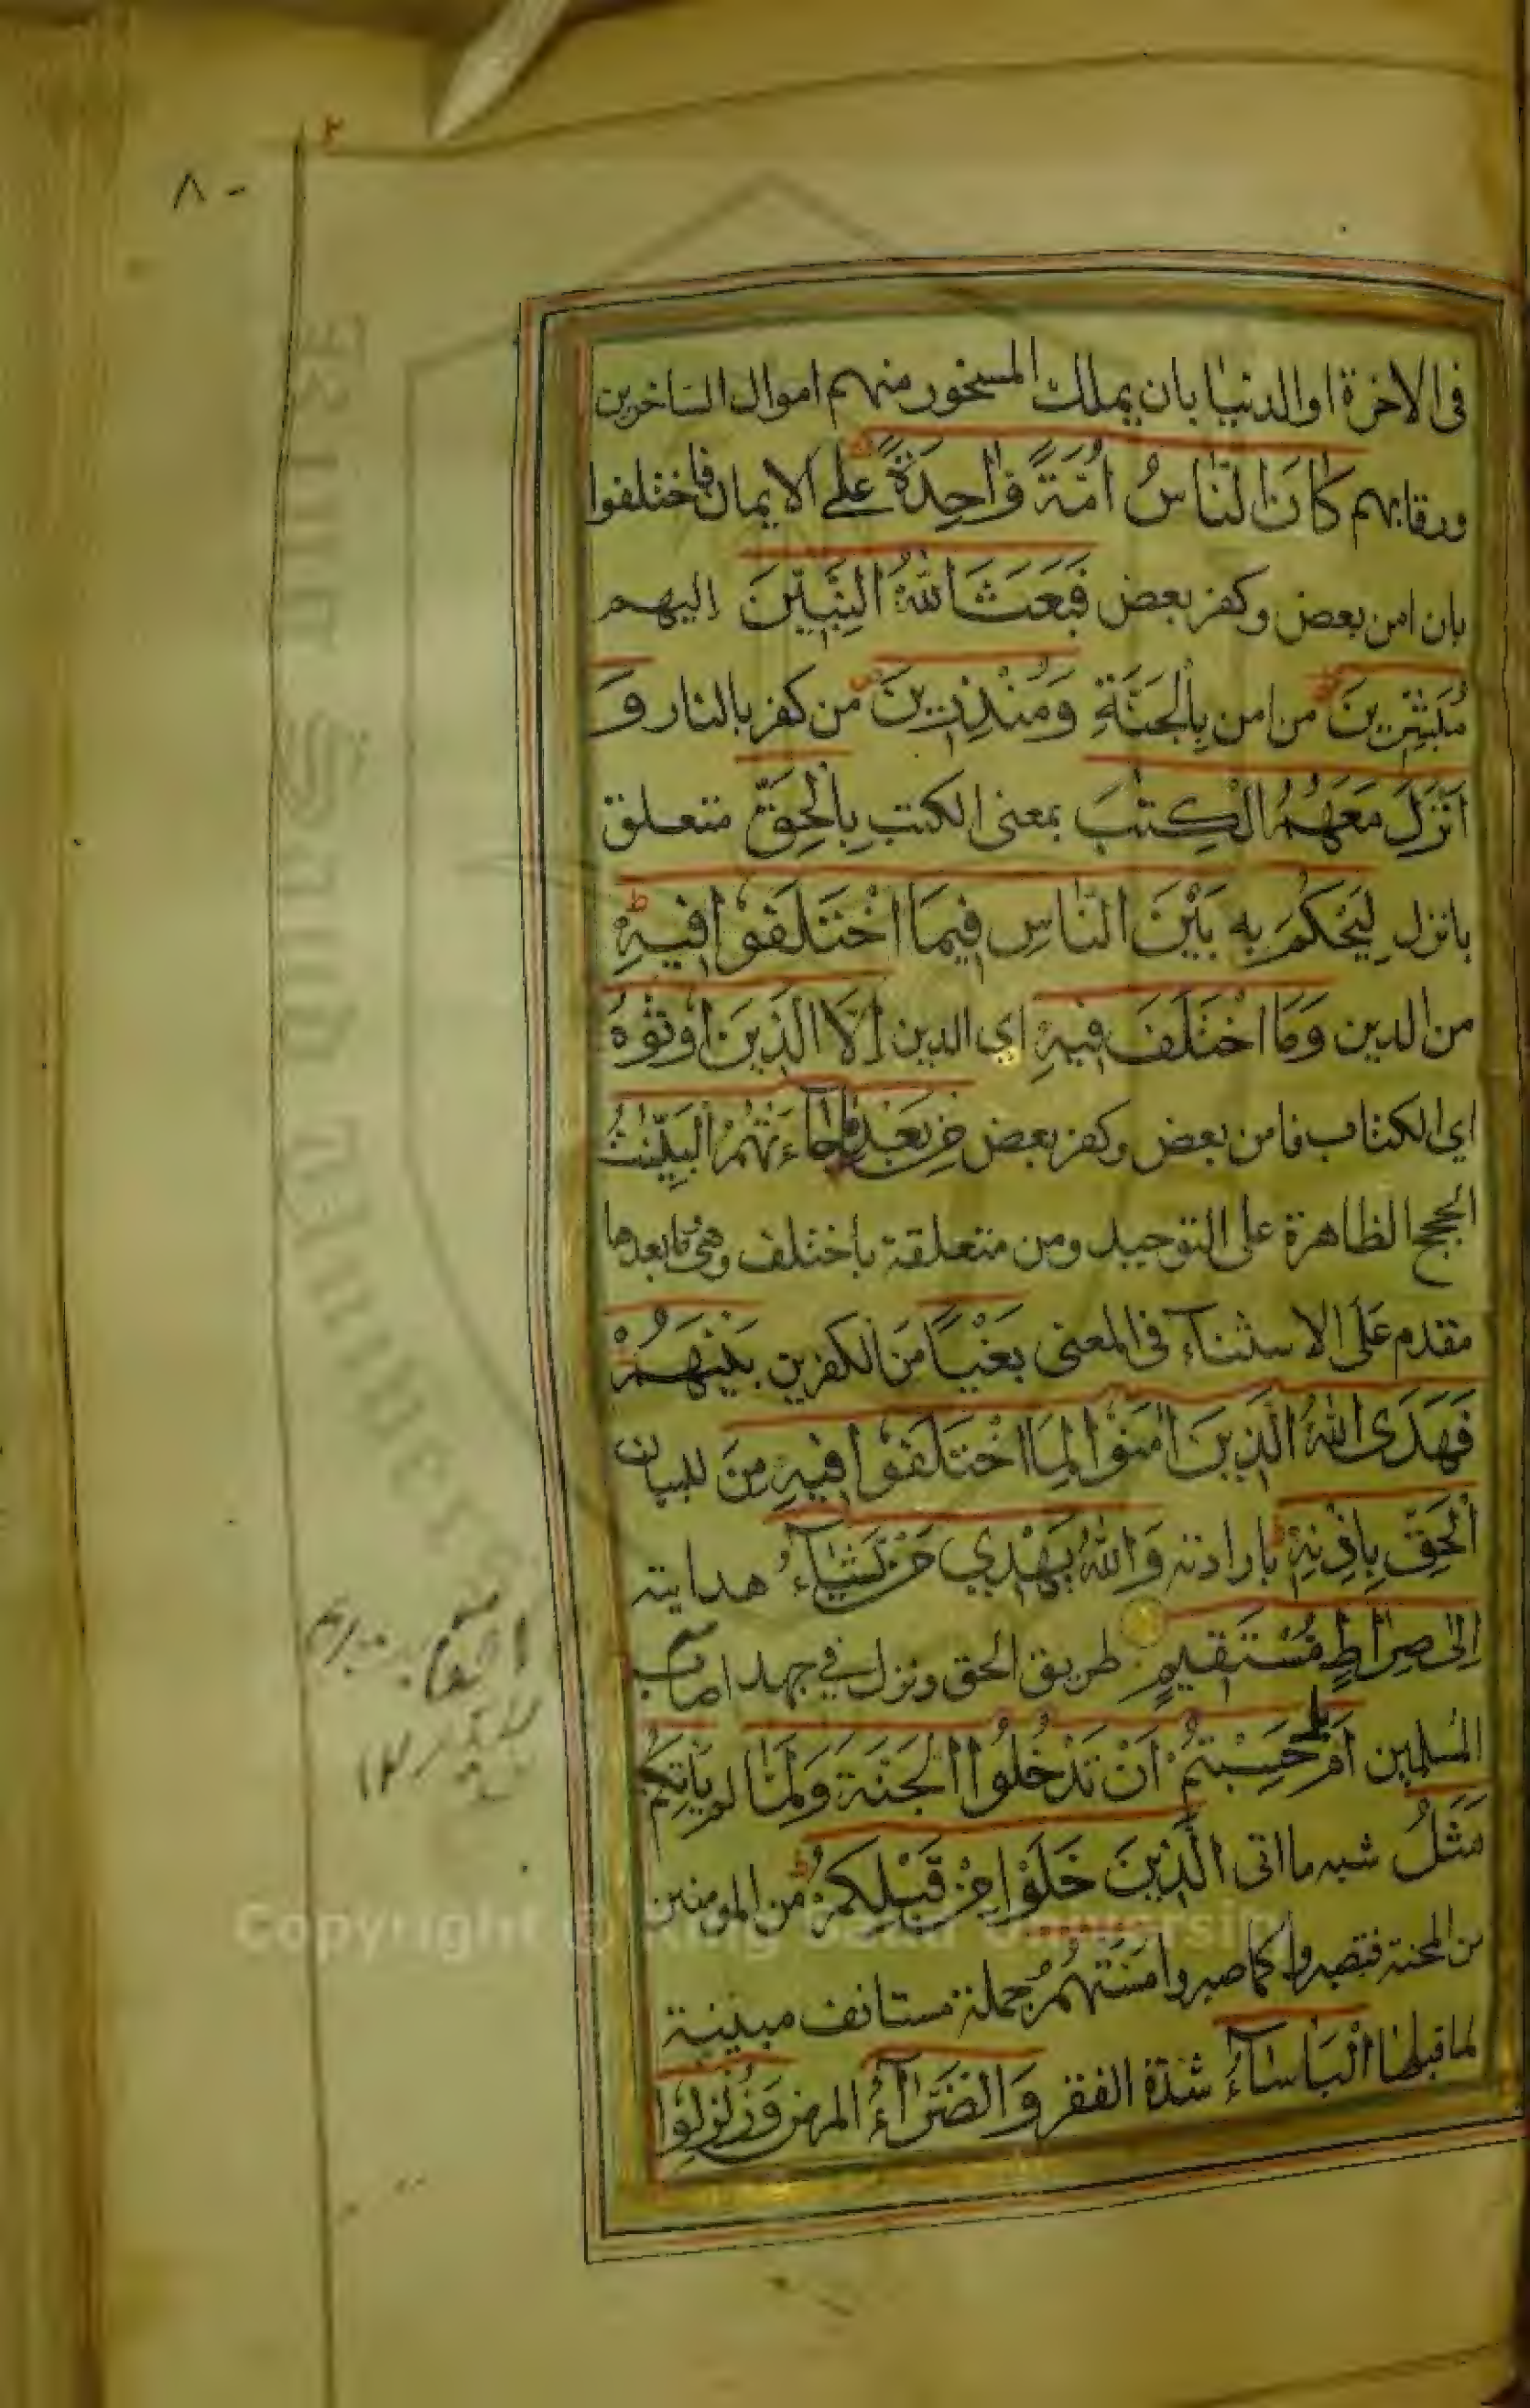 ٨٠
٢
فى الاخرة او الدنيا بان يملك المسخور منهم اموال الساخرين
ورقابهم كَانَ النَّاسُ اُمَّةً وَّاحِدَةً على الايمان فاختلفوا
بان امن بعض وكفر بعض فَبَعَثَ اللّٰهُ النَّبِيّٖنَ اليهم
مُبَشِّرِيْنَ من امن بِالْجَنَّةِ وَمُنْذِرِيْنَ من كفر بالنار وَ
اَنْزَلَ مَعَهُمُ الْكِتٰبَ بمعنى الكتب بِالْحَقِّ متعلق
بانزل لِيَحْكُمَ به بَيْنَ النَّاسِ فِيْمَا اخْتَلَفُوْا فِيْهِ
من الدين وَمَا اخْتَلَفَ فِيْهِ اى الدين اِلَّا الَّذِيْنَ اُوْتُوْهُ
اى الكتاب فامن بعض وكفر بعض مِنْ بَعْدِ مَا جَاءَتْهُمُ الْبَيِّنٰتُ
الحجج الظاهرة على التوحيد ومن متعلقة باختلف وهى وما بعدها
مقدم عَلَى الاستثناء فى المعنى بَغْيًا مَن الكفرين بَيْنَهُمْ
فَهَدَى اللّٰهُ الَّذِيْنَ اٰمَنُوْا لِمَا اخْتَلَفُوْا فِيْهِ مِنَ للبيان
الْحَقِّ بِاِذْنِهٖ بارادته وَاللّٰهُ يَهْدِيْ مَنْ يَّشَآءُ هدايته
اِلٰى صِرَاطٍ مُّسْتَقِيْمٍ طريق الحق ونزل في جهد اصاب
المسلمين اَمْ بل حَسِبْتُمْ اَنْ تَدْخُلُوا الْجَنَّةَ وَلَمَّا لم يَاْتِكُمْ
مَّثَلُ شبه ما اتى الَّذِيْنَ خَلَوْا مِنْ قَبْلِكُمْ من المومنين
من المحنة فتصبروا كما صبروا مَسَّتْهُمْ جملة مستانفه مبينة
لما قبلها الْبَاْسَآءُ شدة الفقر وَالضَّرَّآءُ المرض وَزُلْزِلُوْا
Copyright © King Saud University
King Saud University